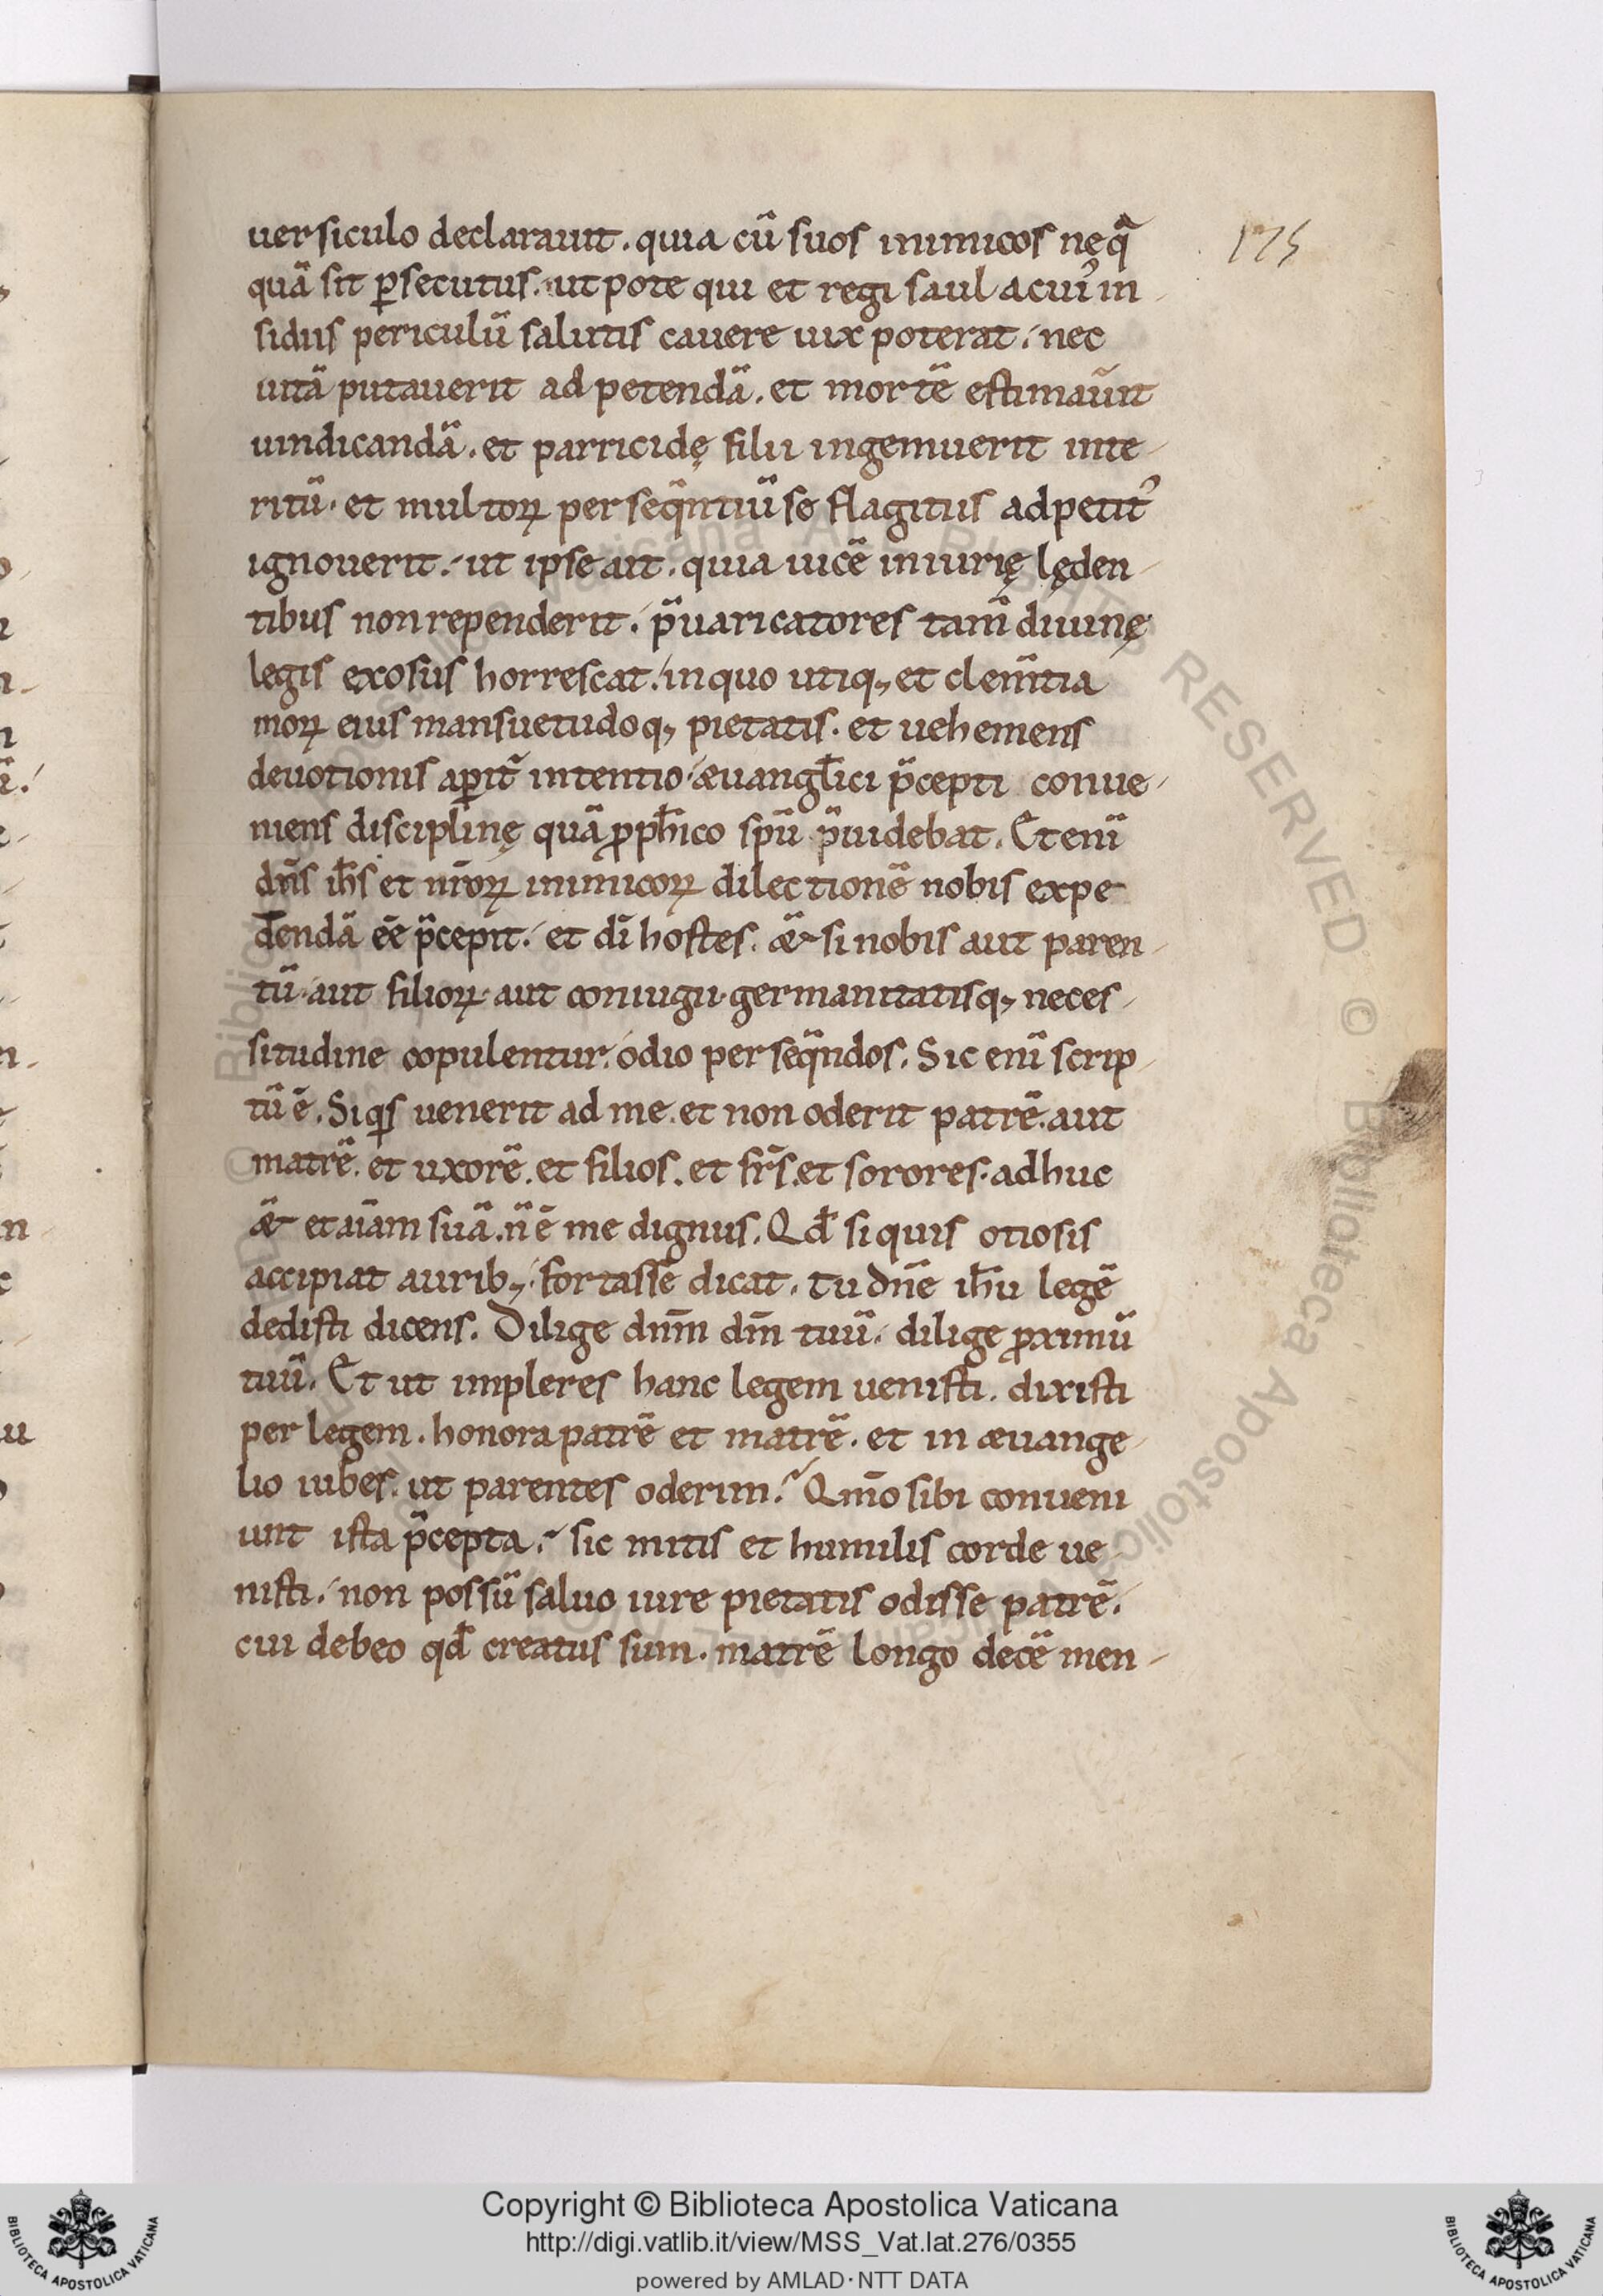 175
uersiculo declarauit. quia cũ suos inimicos neq̃
quã sit p̱secutus. utpote qui et regi saul a cuiꝰ in
sidiis periculũ salutis cauere uix poterat. nec
uitã putauerit adpetendã. et mortẽ estimaũit
uindicandã. et parricidę filii ingemuerit inte
ritũ. et multoꝝ perseq̃ntiũ se flagitiis adpetitꝰ
ignouerit. ut ipse ait. quia uicẽ iniurię lęden
tibus non rependerit. p̃uaricatores tam̃ diuinę
legis exosus horrescat. in quo utiqꝫ et clem̃tia
moꝝ eius mansuetudoqꝫ pietatis. et uehemens
deuotionis ap̱it̃ intentio. æuangl̃ici p̃cepti conue
niens disciplinę quã ꝓph̃ico spũ p̃uidebat. Et enĩ
dñs ih̃s et nr̃oꝝ inimicoꝝ dilectionẽ nobis expe
tendã eẽ p̃cepit. et dĩ hostes. æ̃t si nobis aut paren
tũ aut filioꝝ aut coniugii germanitatisqꝫ neces
situdine copulentur. odio perseq̃ndos. Sic enĩ scrip
tũ ẽ. Siqĩs uenerit ad me. et non oderit patrẽ. aut
matrẽ. et uxorẽ. et filios. et fr̃s. et sorores. adhuc
æ̃t et aĩam suã. ñ ẽ me dignus. Qd̃ si quis otiosis
accipiat auribꝫ. fortassẽ dicat. Tu dñe ih̃u legẽ
dedisti dicens. Dilige dñm dm̃ tuũ. dilige ꝓximũ
tuũ. Et ut impleres hanc legem uenisti. dixisti
per legem. honora patrẽ et matrẽ. et in æuange
lio iubes. ut parentes oderim. Qm̃o sibi conueni
unt ista p̃cepta. sic mitis et humilis corde ue
nisti. non possũ saluo iure pietatis odisse patrẽ.
cui debeo qd̃ creatus sum. matrẽ longo decẽ men
Copyright © Biblioteca Apostolica Vaticana
http://digi.vatlib.it/view/MSS_Vat.lat.276/0355
powered by AMLAD·NTT DATA
BIBLIOTECA APOSTOLICA VATICANA
BIBLIOTECA APOSTOLICA VATICANA